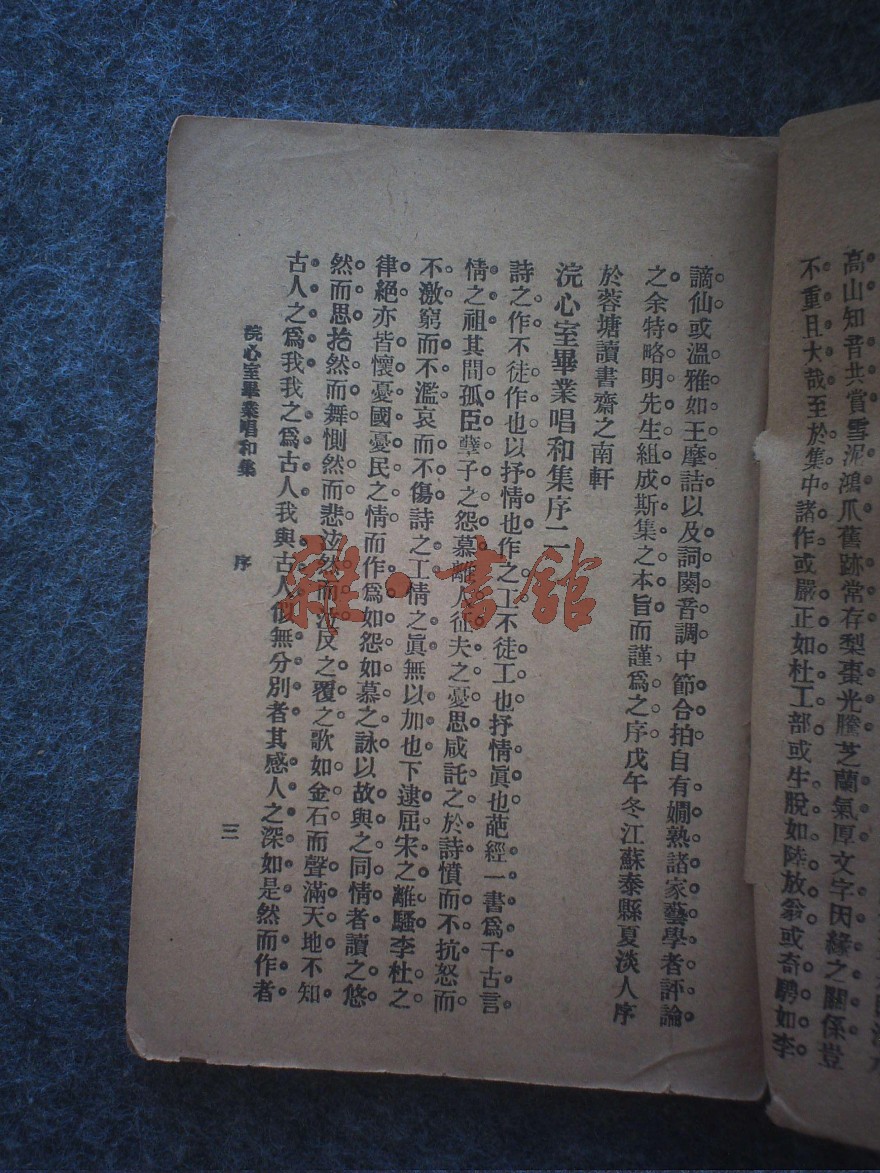 高山知音共賞雪泥鴻爪舊跡常存梨棗光騰芝蘭氣厚文字因緣之關係豈
不重且大哉至於集中諸作或嚴正如杜工部或生脫如陸放翁或奇騁如李
謫仙或溫雅如王摩詰以及詞闋音調中節合拍自有嫺熟諸家藝學者評論
之余特略明先生組成斯集之本旨而謹爲之序戊午冬江蘇泰縣夏淡人序
於蓉塘讀書齋之南軒
浣心室畢業唱和集序二
詩之作不徒作也以抒情也作之工不徒工也抒情眞也葩經一書爲千古言
情之祖其間孤臣孽子之怨慕離人征夫之憂思咸託之於詩憤而不抗怒而
不激窮而不濫哀而不傷詩之工情之眞無以加也下逮屈宋之離騷李杜之
律絕亦皆懷憂國憂民之情而作爲如怨如慕之詠以故與之同情者讀之悠
然而思抬然而舞惻然而悲泫然而泣反之覆之歌如金石而聲滿天地不知
古人之爲我我之爲古人我與古人似無分別者其感人之深如是然而作者
浣心室畢業唱和集
序
三
雜·書館